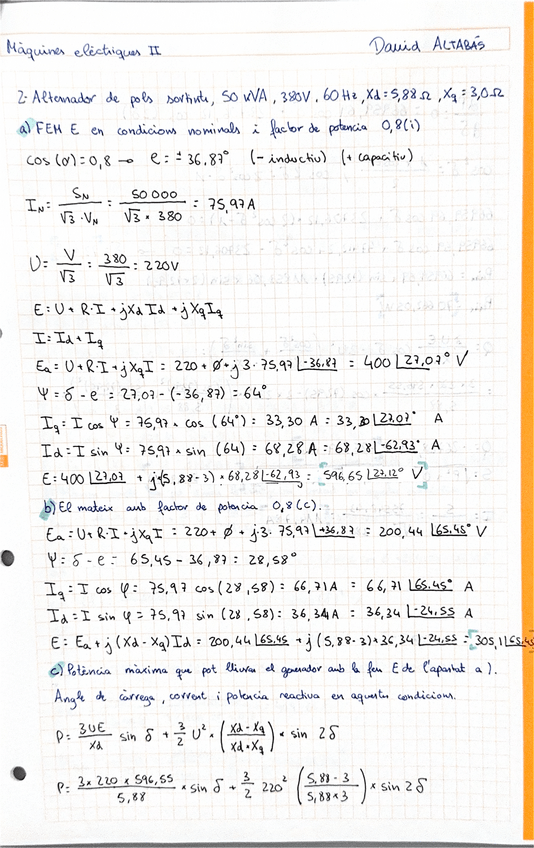 Màquines elèctriques II
David ALTABÁS
2. Alternador de pols sortints, 50 kVA, 380V, 60 Hz, Xd = 5,88 Ω, Xq = 3,0 Ω
a) FEM E en condicions nominals i factor de potencia 0,8(i)
cos(φ) = 0,8 → φ = ± 36,87° (- inductiu) (+ capacitiu)
I_N = S_N / (√3 · V_N) = 50 000 / (√3 × 380) = 75,97 A
U = V / √3 = 380 / √3 = 220V
E = U + R·I + jXd Id + jXq Iq
I = Id + Iq
Ea = U + R·I + jXq I = 220 + ∅ + j3 · 75,97 ∠-36.87 = 400 ∠27,07° V
Ψ = δ - φ = 27,07 - (-36,87) = 64°
Iq = I cos Ψ = 75,97 × cos (64°) = 33,30 A = 33,30 ∠27.07° A
Id = I sin Ψ = 75,97 × sin (64) = 68,28 A = 68,28 ∠-62,93° A
E = 400 ∠27,07 + j(5,88-3) × 68,28 ∠-62,93 = [596,65 ∠27.12° V]
b) El mateix amb factor de potencia 0,8(c).
Ea = U + R·I + jXq I = 220 + ∅ + j3. 75,97 ∠+36.87 = 200,44 ∠65.45° V
Ψ = δ - φ = 65,45 - 36,87 = 28,58°
Iq = I cos φ = 75,97 cos (28,58) = 66,71 A = 66,71 ∠65.45° A
Id = I sin φ = 75,97 sin (28,58) = 36,34 A = 36,34 ∠-24,55 A
E = Ea + j(Xd - Xq) Id = 200,44 ∠65.45 + j(5,88-3)*36,34 ∠-24,55 = [305,1 ∠65.45
c) Potència màxima que pot lliurar el generador amb la fem E de l'apartat a).
Angle de càrrega, corrent i potencia reactiva en aquestes condicions.
P = 3UE / Xd sin δ + 3/2 U² × ((Xd - Xq) / (Xd × Xq)) × sin 2δ
P = (3 × 220 × 596,55) / 5,88 × sin δ + 3/2 220² ((5,88 - 3) / (5,88 × 3)) × sin 2δ